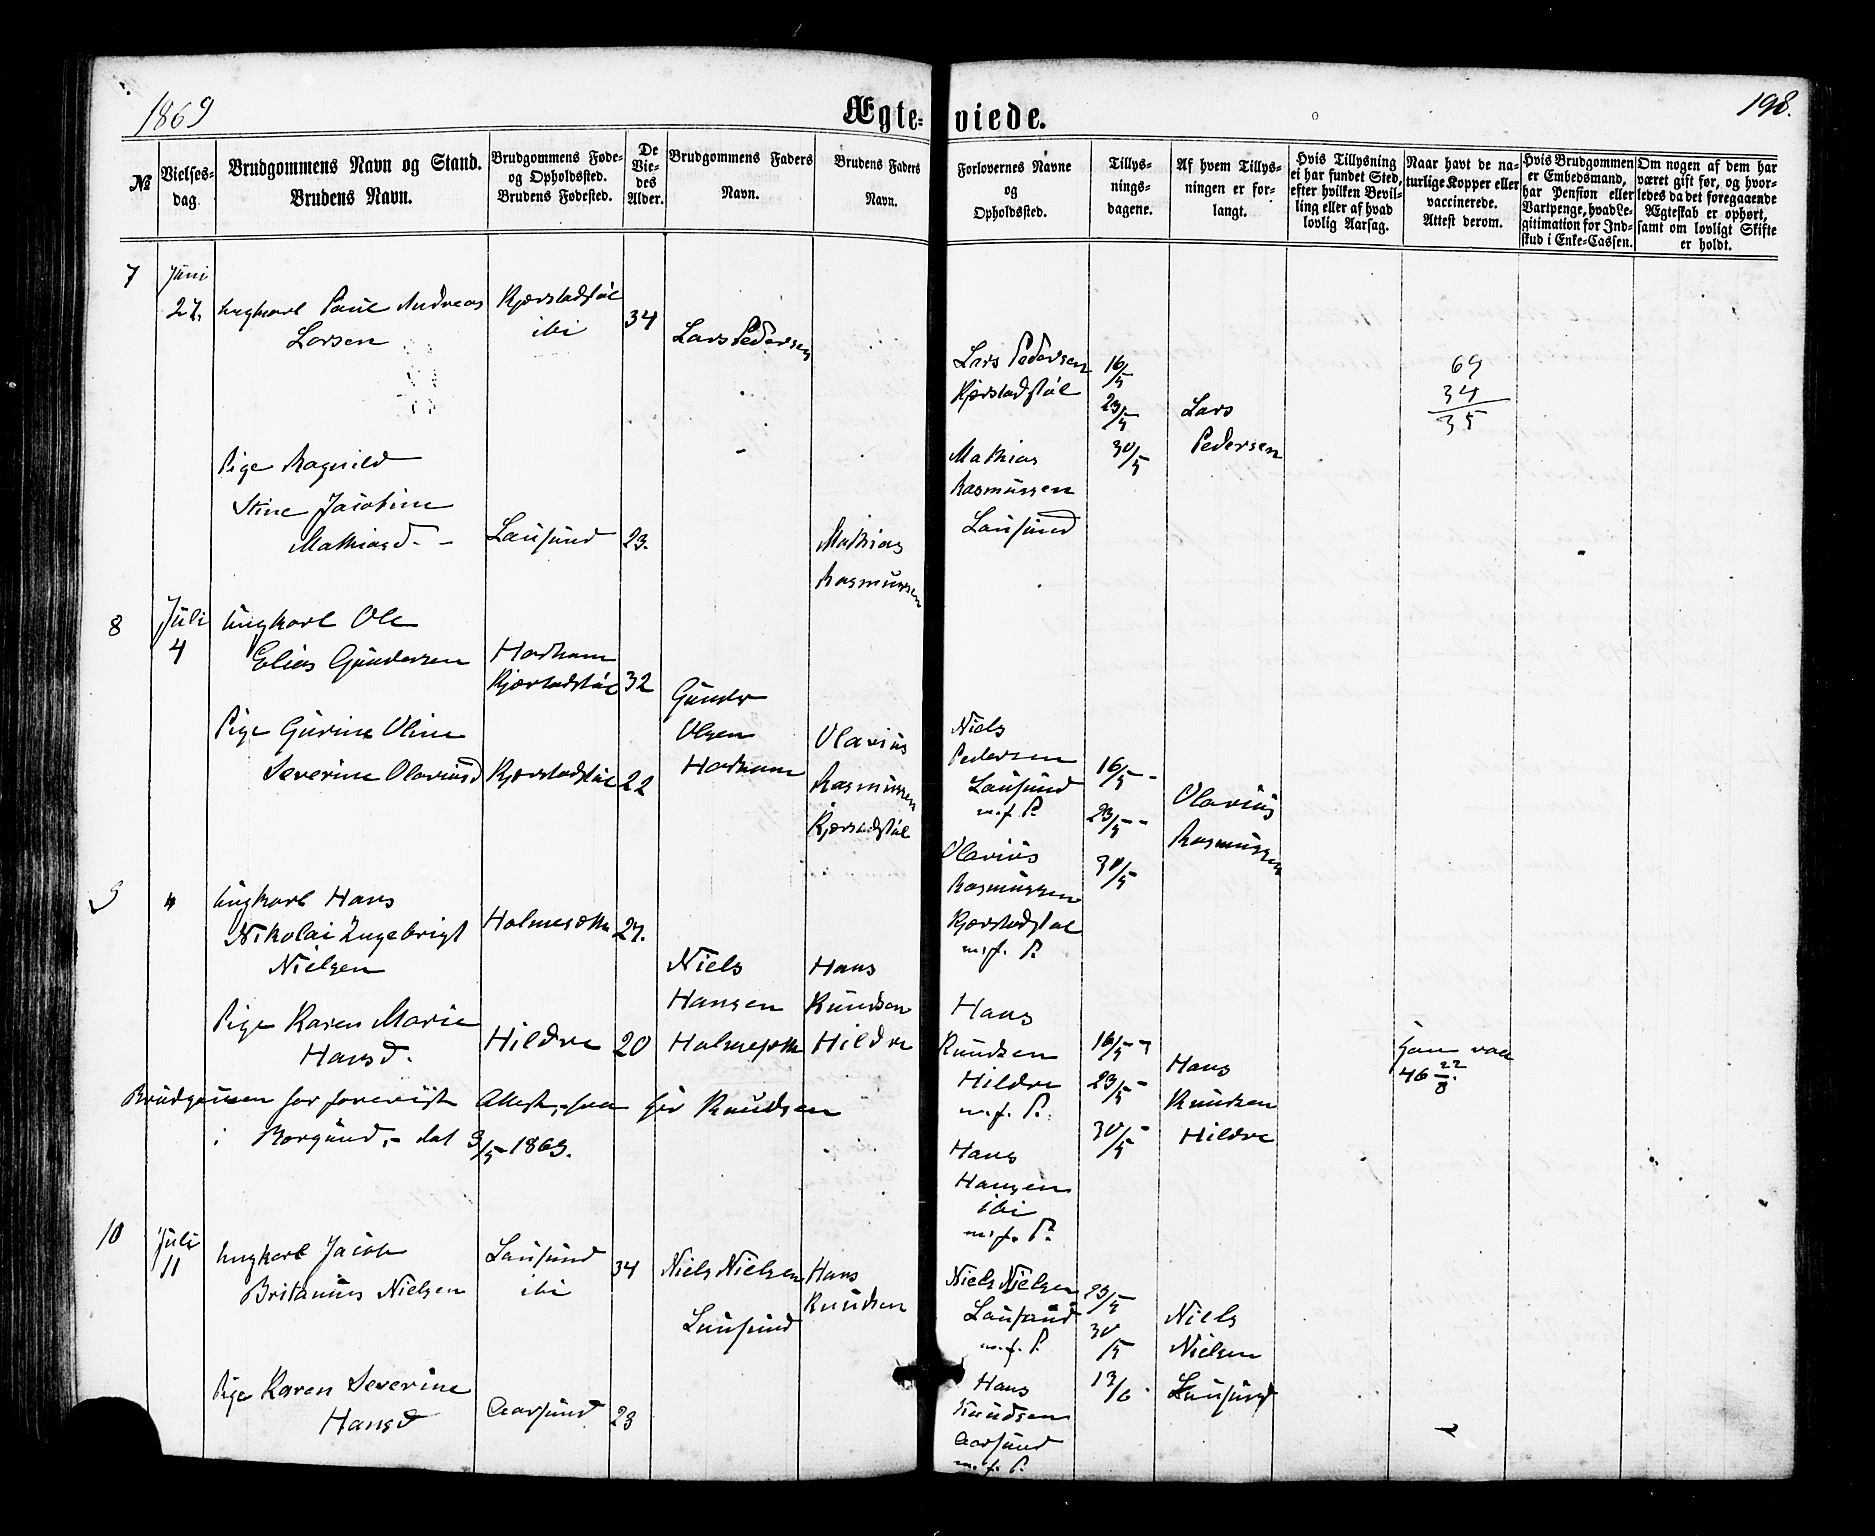 1869
Ægteviede.
198.
№
Vielsesdag
Brudgommens Navn og Stand.
Brudens Navn.
Brudgommens Føde-
og Opholdssted.
Brudens Fødested.
De
Vie-
des
Alder.
Brudgommens Faders
Navn.
Brudens Faders
Navn.
Forlovernes Navne
og
Opholdssted.
Tillys-
nings-
dagene.
Af hvem Tillys-
ningen er for-
langt.
Hvis Tillysning
ei har fundet Sted,
efter hvilken Bevil-
ling eller af hvad
lovlig Aarsag.
Naar havt de na-
turlige Kopper eller
vaccinerede.
Attest derom.
Hvis Brudgommen
er Embedsmand,
har Pension eller
Vartpenge, hvad Le-
gitimation for Ind-
skud i Enke-Cassen.
Om nogen af dem har
været gift før, og hvor-
ledes da det foregaaende
Ægteskab er ophørt,
samt om lovligt Skifte
er holdt.
7
Juni
27.
Ungkarl Paul Andreas
Larsen
Kjærstadstøl
ibi
34
Lars Pedersen
Lars Pedersen
Kjærstadstøl
16/5
23/5
30/5
Lars
Pedersen
69
34
35
Pige Ragnild
Stine Jacobine
Mathiasd. -
Lausund
23.
Mathias
Rasmussen
Mathias
Rasmussen
Lausund
8
Juli
4
Ungkarl Ole
Elias Gundersen
Harham
Kjærstadstøl
32
Gunder
Olsen
Harham
Pige Gurine Oline
Severine Olaviusd
Kjærstadstøl
22
Olavius
Rasmussen
Kjærstadstøl
Niels
Pedersen
Lausund
m. f. P.
Olavius
Rasmussen
Kjærstadstøl
m. f. P.
16/5 -
23/5 -
30/5
Olavius
Rasmussen
9
"
Ungkarl Hans
Nikolai Ingebrigt
Nielsen
27.
Niels
Hansen
Pige Karen Marie
Hansd.
Hildre
20
Hans
Knudsen
Hildre
Hans
Knudsen
Hildre
m. f. P.
Hans
Hansen
ibi
m. f. P.
16/5 -
23/5 -
30/5 -
Hans
Knudsen
Hildre
46 22/8.
Brudgommen har foreviist Attest fra Knudsen
i Borgund, - dat 3/5 - 1869.
10
Juli
11
Ungkarl Jacob
Britanius Nielsen
Lausund
ibi
34
Niels Nielsen
Lausund
Hans
Knudsen
Pige Karen Severine
Hansd
Aarsund
23
Niels Nielsen
Lausund
m. f. P.
Hans
Knudsen
Aarsund
m. f. P.
23/5
30/5
13/6
Niels
Nielsen
Lausund